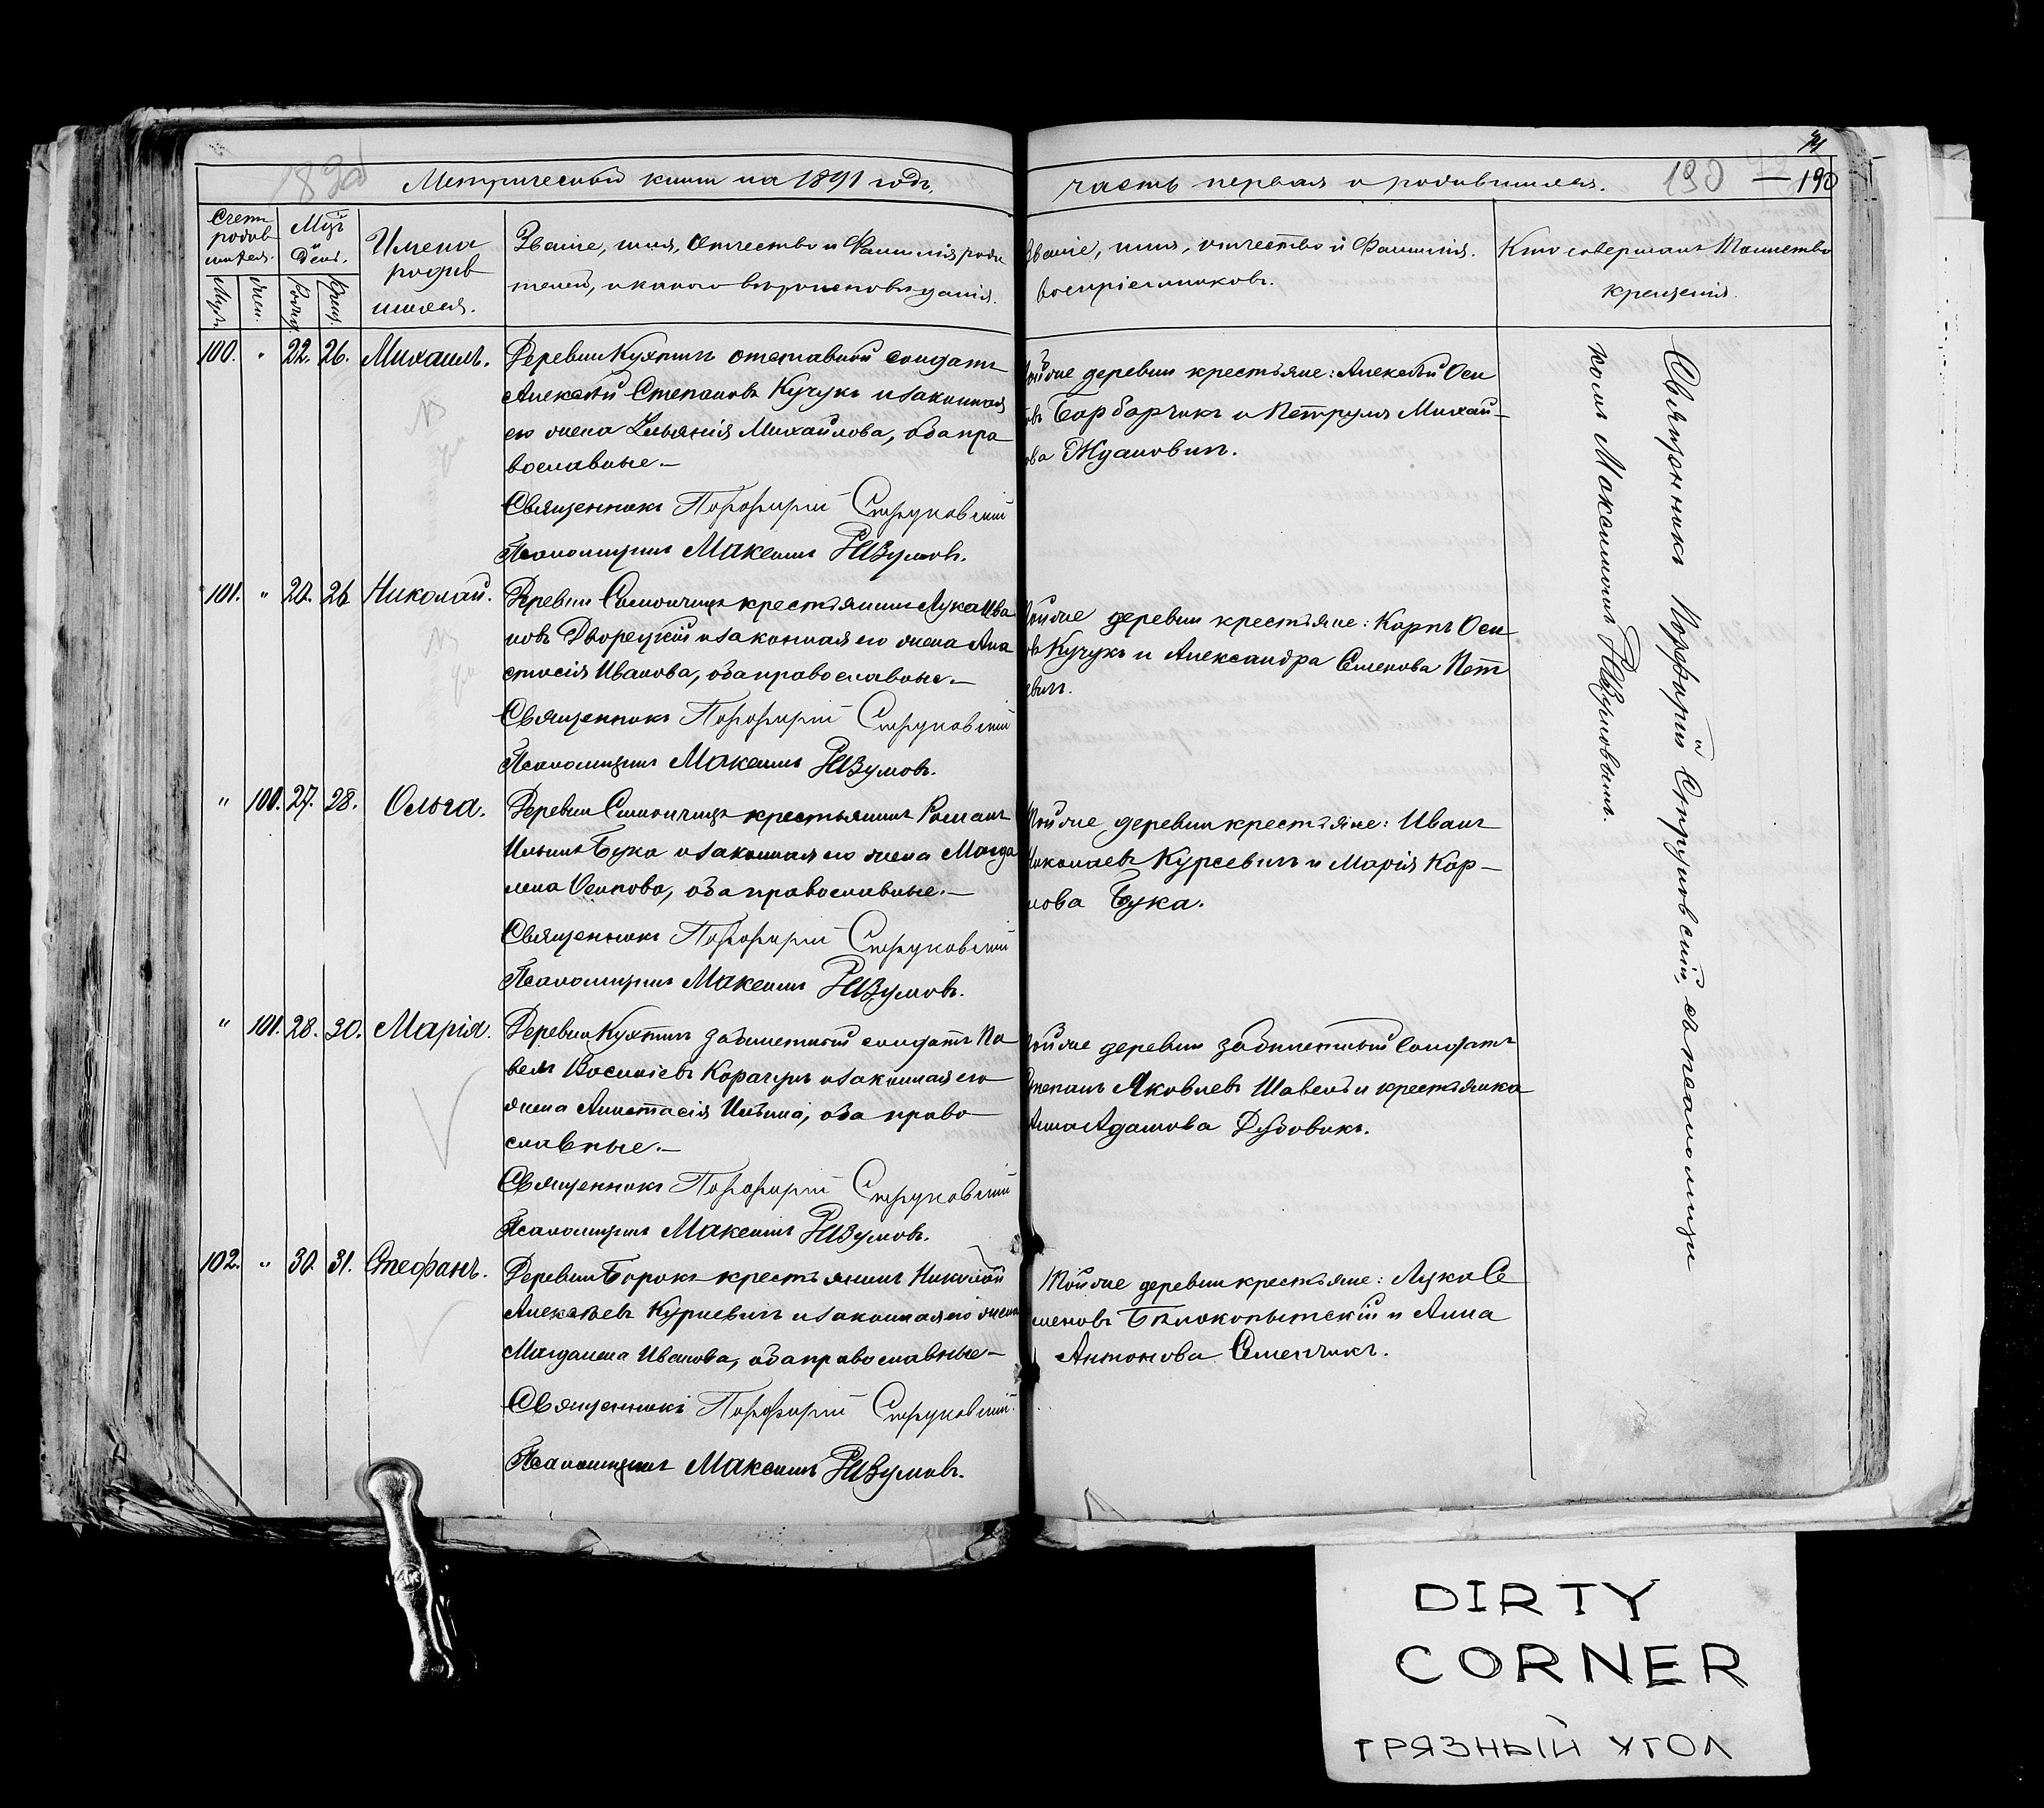 Метрической книги на 1891 годъ,
часть первая о родившихся.
190 — 190
Счетъ родив шихся.
Мѣс. и День.
Имена родив шихся.
Званіе, имя, Отчество и Фамилія роди
телей, и какого вѣроисповѣданія.
Званіе, имя, отчество и Фамилія.
воспріемниковъ.
Кто совершалъ Таинство
крещенія.
Муж.
Жен.
Рожд.
Крещ.
100. " 22. 26. Михаилъ.
Деревни Кухтичъ отставной солдатъ
Алексѣй Степановъ Кучукъ и законная
его жена Ульянія Михайлова, оба пра
вославные.—
Священникъ Порфирій Струковскій
Псаломщикъ Максимъ Наумовъ.
Той же деревни крестьяне: Алексѣй Оси
овъ Барбарчикъ и Петруля Михай-
ова Ждановичъ.
101. " 20. 26 Николай.
Деревни крестьянинъ Лука Ива
новъ Дворецкій и законная его жена Ана
стасія Иванова, оба православные.—
Священникъ Порфирій Струковскій
Псаломщикъ Максимъ Наумовъ.
Той же деревни крестьяне: Карпъ Оси
овъ Кучукъ и Александра Семенова Пет
евичъ.
" 100. 27. 28. Ольга.
Деревни крестьянинъ Романъ
Ильинъ Бука и законная его жена Магда
лена Осипова, оба православные.—
Священникъ Порфирій Струковскій
Псаломщикъ Максимъ Наумовъ.
Той же деревни крестьяне: Иванъ
Николаевъ Курсевичъ и Марія Кар-
лова Бука.
" 101. 28. 30. Марія.
Деревни Кухтичъ забилетный солдатъ Па
велъ Василіевъ Корачунъ и законная его
жена Анастасія Ильина, оба право
славные.—
Священникъ Порфирій Струковскій
Псаломщикъ Максимъ Наумовъ.
Той же деревни забилетный Солдатъ
Степанъ Яковлевъ Шавель и крестьянка
Анна Адамова Дубовикъ.
102. " 30. 31. Стефанъ.
Деревни Борокъ крестьянинъ Николай
Алексѣевъ Курневичъ и законная его жена
Магдалена Иванова, оба православные—
Священникъ Порфирій Струковскій.
Псаломщикъ Максимъ Наумовъ.
Той же деревни крестьяне: Лука Се
меновъ Бѣлокопытскій и Анна
Антонова Семенчикъ.
Священникъ Порфирій Струковскій, съ псаломщи
комъ Максимомъ Наумовымъ.
DIRTY
CORNER
ГРЯЗНЫЙ УГОЛ